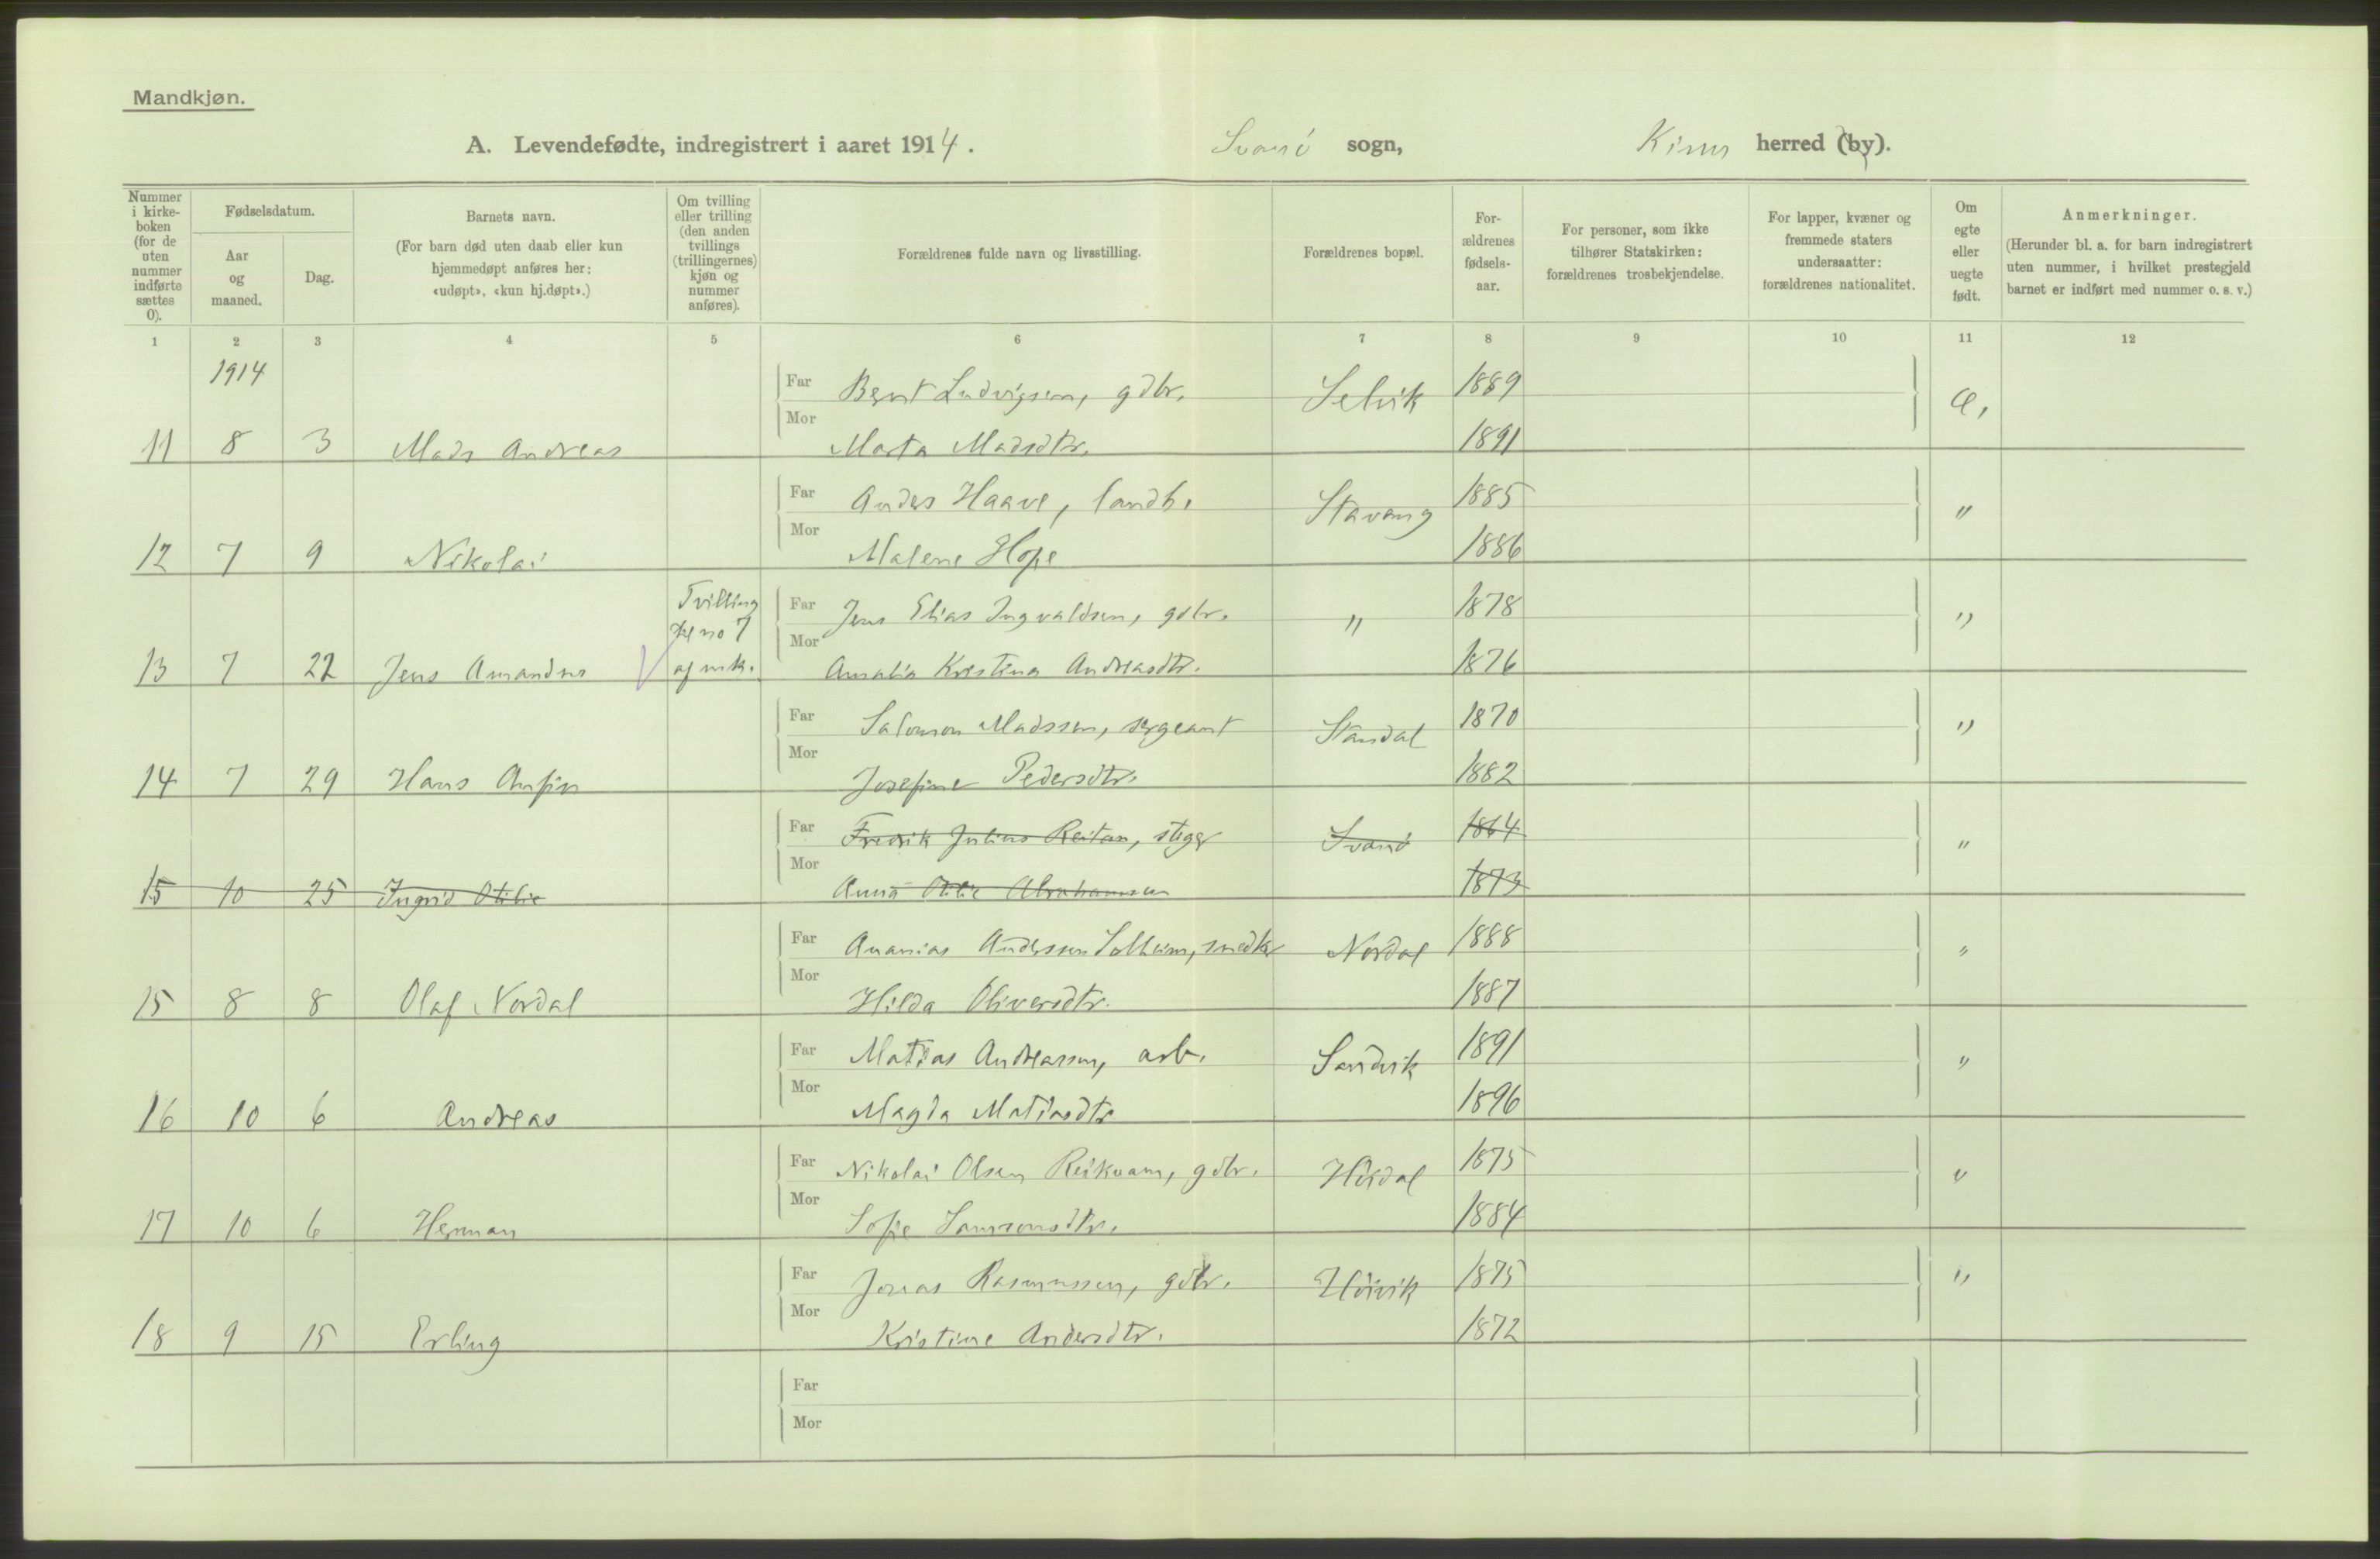 Mandkjøn.
A. Levendefødte, indregistrert i aaret 1914. Svanö sogn, Kinn herred (by).
Nummer i kirke-boken (for de uten nummer indførte sættes 0).
Fødselsdatum.
Aar og maaned.
Dag.
Barnets navn.
(For barn død uten daab eller kun hjemmedøpt anføres her: «udøpt», «kun hj.døpt».)
Om tvilling eller trilling (den anden tvillings (trillingernes) kjøn og nummer anføres).
Forældrenes fulde navn og livsstilling.
Forældrenes bopæl.
For-ældrenes fødsels-aar.
For personer, som ikke tilhører Statskirken: forældrenes trosbekjendelse.
For lapper, kvæner og fremmede staters undersaatter: forældrenes nationalitet.
Om egte eller uegte født.
Anmerkninger.
(Herunder bl. a. for barn indregistrert uten nummer, i hvilket prestegjeld barnet er indført med nummer o. s. v.)
1 2 3 4 5 6 7 8 9 10 11 12
1914
Far Bernt Ludvigsen, gdbr. Selvik 1889 æ,
11 8 3 Mads Andreas Mor Marta Madsdtr. 1891
Far Anders Haave, landh. Stavang 1885 "
12 7 9 Nikolai Mor Malene Hope 1886
Tvilling
Far Jens Elias Ingvaldsen, gdbr. " 1878 "
no 7
13 7 22 Jens Amandus af mk. Mor Amalia Kristina Andreasdtr. 1876
Far Salomon Madssen, sergeant Standal 1870 "
14 7 29 Hans Anfin Mor Josefine Pedersdtr. 1882
Far Fredrik Julius Reitan, stiger Svanö 1864 "
15 10 25 Ingrid Otilie Mor Anna Otilie Abrahamsen 1873
Far Ananias Anderssen Solheim, snedker Nordal 1888 "
15 8 8 Olaf Nordal Mor Hilda Oliversdtr. 1887
Far Matias Andreassen, arb. Sandvik 1891 "
16 10 6 Andreas Mor Magda Matiasdtr 1896
Far Nikolai Olsen Reikvam, gdbr. Hördal 1875 "
17 10 6 Herman Mor Sofie Samsonsdtr. 1884
Far Jonas Rasmussen, gdbr. Höivik 1875 "
18 9 15 Erling Mor Kristine Andersdtr. 1872
Far
Mor